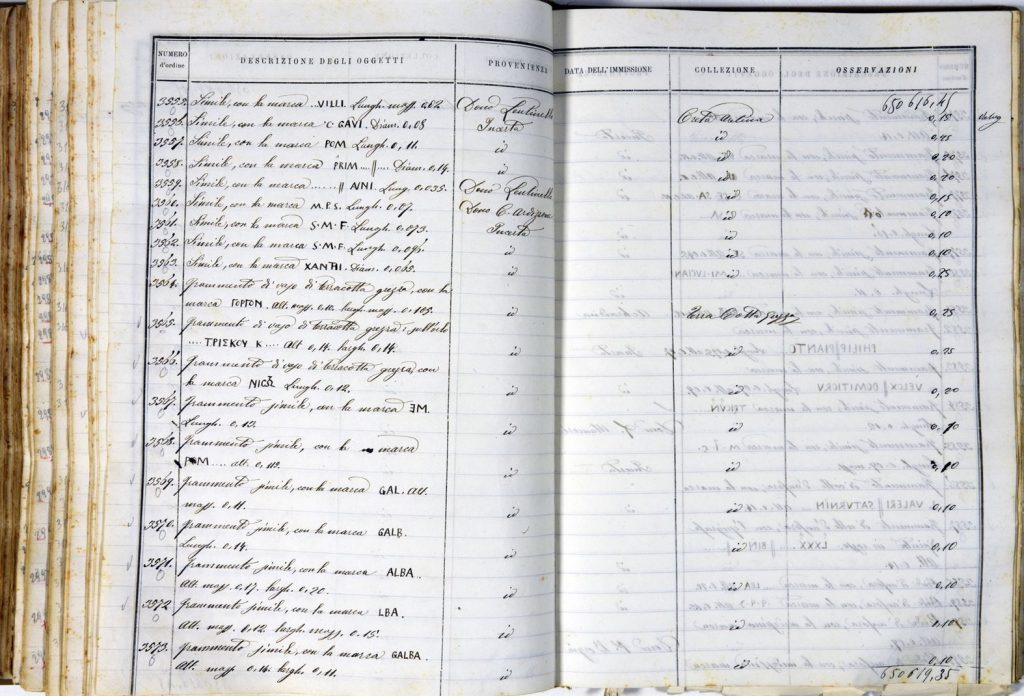 NUMERO d'ordine DESCRIZIONE DEGLI OGGETTI PROVENIENZA DATA DELL'IMMISSIONE COLLEZIONE OSSERVAZIONI
650616,45
3555. Simile, con la marca ..VILLI. Lungh. mass. 0,62 Dono 0,15
3556. Simile, con la marca C GAVI. Diam. 0,08 Incerta Creta Aretina 0,25
3557. Simile, con la marca POM Lungh. 0,11. id id 0,20
3558. Simile, con la marca PRIM....||.... Diam. 0,14. id id 0,20
3559. Simile, con la marca ......|| AINI. Lung. 0,035. Dono id 0,15
3560. Simile, con la marca M.P.S. Lungh. 0,07. Dono C. id 0,10
3561. Simile, con la marca S·M·F. Lungh. 0,073. Incerta id 0,10
3562. Simile, con la marca S·M·F. Lungh. 0,095. id id 0,10
3563. Simile, con la marca XANTHI. Diam. 0,065. id id 0,25
3564. frammento di vaso di terracotta grezza, con la
marca ΓΟΡΤΟΝ. Alt. mass. 0,12. largh. mass. 0,105. id Terra Cotta grezza 0,25
3565. frammento di vaso di terracotta grezza,
.... ΤΡΙΣΚΟΥ Κ.... Alt 0,14. largh. 0,14. id id 0,25
3566. frammento di vaso di terracotta grezza con
la marca Lungh. 0,12. id id 0,20
3567. frammento simile, con la marca ƎM.
Lungh. 0,12. id id 0,10
3568. frammento simile, con la marca
POM.... alt. 0,112. id id 0,10
3569. frammento simile, con la marca GAL. Alt.
mass. 0,11. id id 0,10
3570. frammento simile, con la marca GALB.
Lungh. 0,14. id id 0,10
3571. frammento simile, con la marca ALBA..
Alt. mass. 0,17. largh. 0,20. id id 0,10
3572 frammento simile, con la marca LBA.
Alt. mass. 0,12. largh. mass. 0,15. id id 0,10
3573. frammento simile, con la marca GALBA.
Alt. mass. 0,14. largh. 0,11. id id 0,10
650619,35